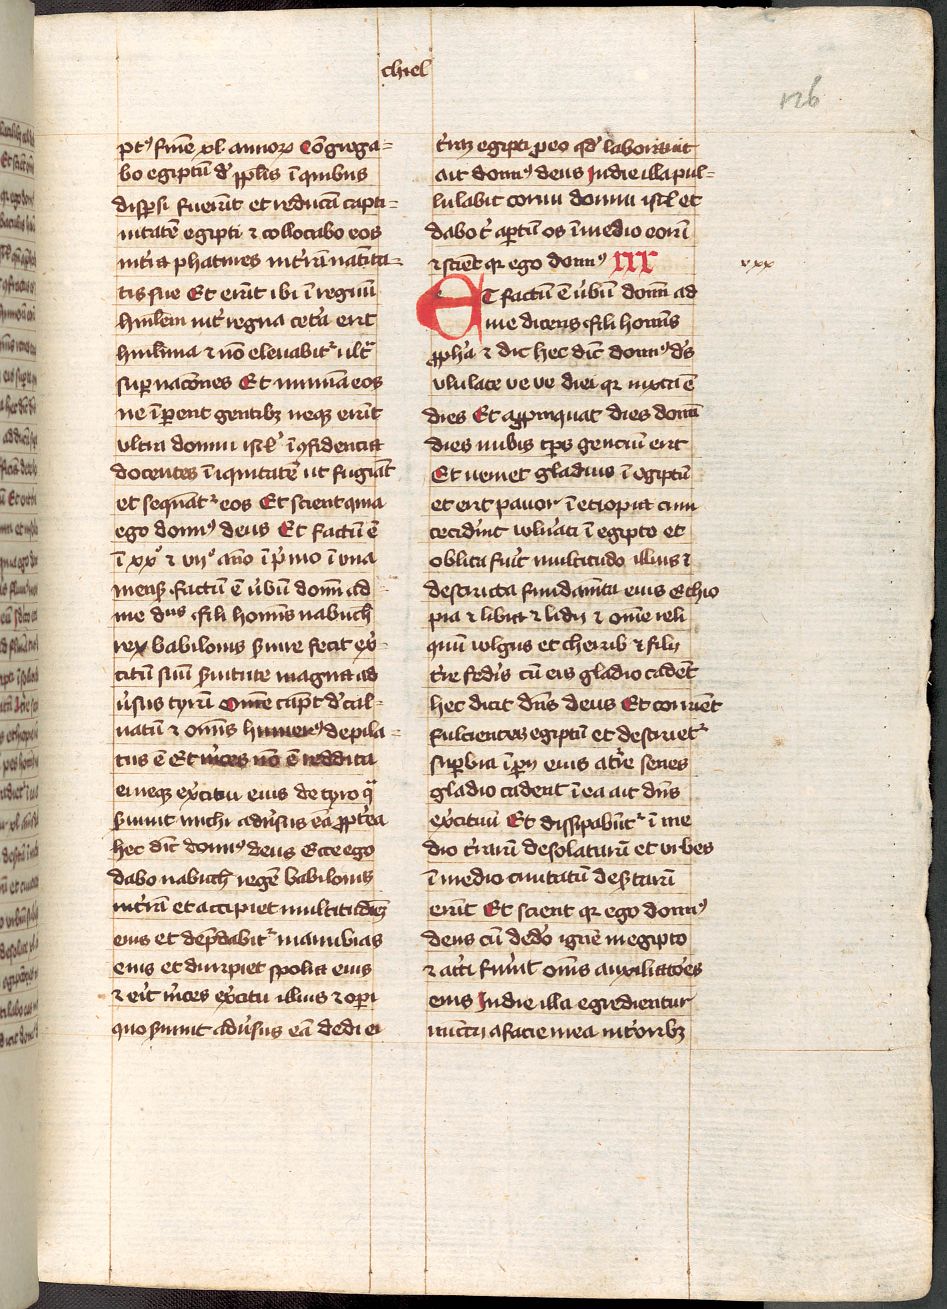 chiel
126
ptꝰ fuīe xl annoꝝ Cōgrega-
bo egiptū d' ꝓplīs ī quibus
disꝑsi fuerūt et reducā capti-
uitatē egipti ⁊ collocabo eos
int'ra phatures int'rā natiui-
tis sue Et erūt ibi ī regnū
humīlem int' regna cet'a erit
humīlima ⁊ nō eleuabit᷑ ult᷑
suꝑ nac̄ones Et īminuā eos
ne īꝑent gentibꝫ neqꝫ erūt
ultra domui isrl' ī ꝯfidencia
docentes īiquitatē ut fugiāt
et sequāt᷑ eos Et scient quia
ego domīꝰ deus Et factū ē
ī xxº ⁊ viiº año ī p'mo ī vna
mensꝭ factū ē ūbū domī ad
me dn̄s fili homīs nabuch'
rex babilonis ẜuire fecit ex'-
citū suū ẜuitute magna ad
ūsus tyrū Om̄e caput d'cal-
uatū ⁊ om̄is humerꝰ depila-
tus ē Et m'ces nō ē reddita
ei neqꝫ ex'citui eius de tyro q̄
ẜuiuit michi aduersus eā ꝓpt'ea
hec dic̄ domīꝰ deus Ecce ego
dabo nabuch' regē babilonis
int'rā et accipiet multitudinē
eius et dep̄dabit᷑ manubias
eius et diripiet spolia eius
⁊ eīt m'ces ex'citui illius ⁊ oꝑi
quo ẜuiuit aduersus eā dedi ei
t'rā egipti ꝓ eo qd' laborauit
ait domīꝰ deus In die illa pul-
lulabit cornu domui isrl' et
dabo t' aꝑtū os ī medio eoꝝ
⁊ sciēt qr ego domīꝰ XXX
xxx
ET factū ē ūbū domī ad
me dicens fili homīs
ꝓph'a ⁊ dic hec dic̄ domīꝰ ds
vlulate ve ve diei qr iuxta ē
dies Et aꝓpinquat dies domī
dies nubis tp̄s genciū erit
Et ueniet gladius ī egiptū
et erit pauor ī etiopia cum
cecidīt vulnāti ī egipto et
oblita fuīt multitudo illius ⁊
destructa fundamēta eius Ethio
pia ⁊ libia ⁊ lidij ⁊ om̄e reli
quū vulgus et cherub ⁊ filij
t're fed'is cū eis gladio cadēt
hec dicit dn̄s deus Et corruēt
fulcientes egiptū et destruet᷑
suꝑbia īꝑij eius at'rre senes
gladio cadent ī ea ait dn̄s
ex'cituū Et dissipabūt᷑ ī me
dio t'rarū desolatarū et vrbes
ī medio ciuitatū des'tarū
erūt Et scient qr ego domīꝰ
deus cū dedo ignē in egipto
⁊ at'ti fuīnt om̄s auxiliatōes
eius In die illa egredientur
nuncij a facie mea in t'ribꝫ